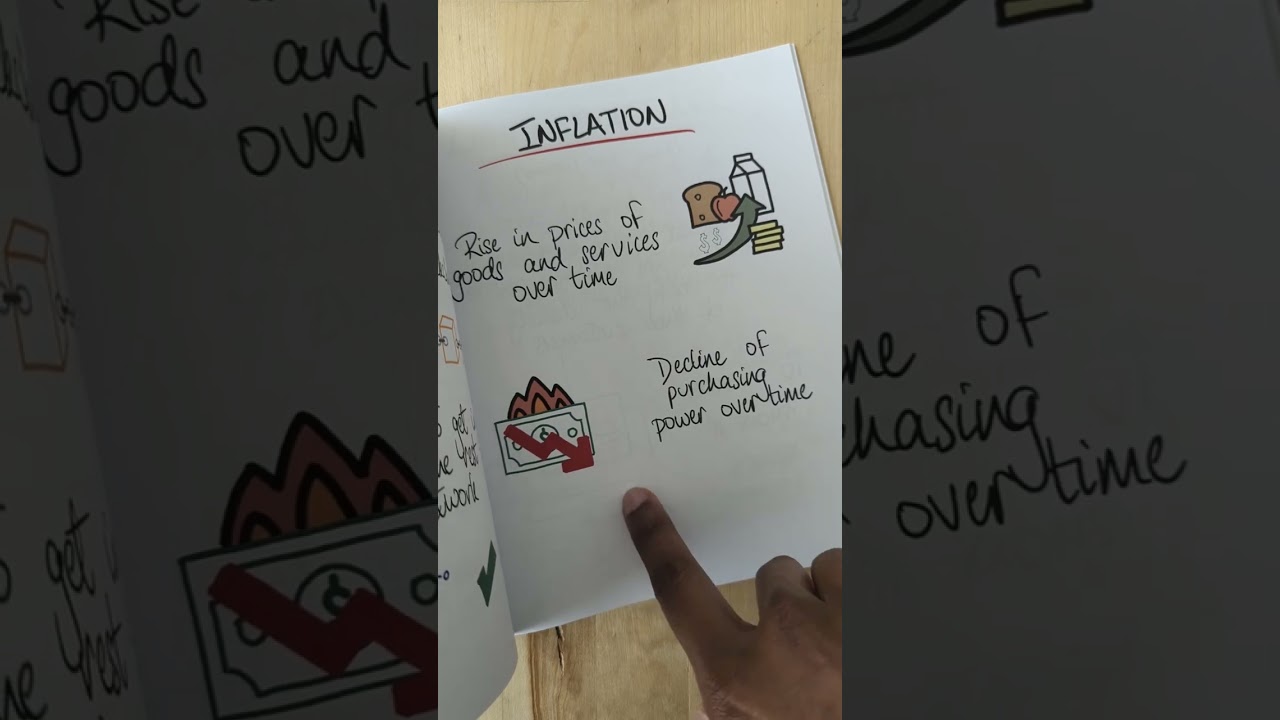 INFLATION
Rise in prices of
goods and services
over time
$$
Decline of
purchasing
power over time
get
rest